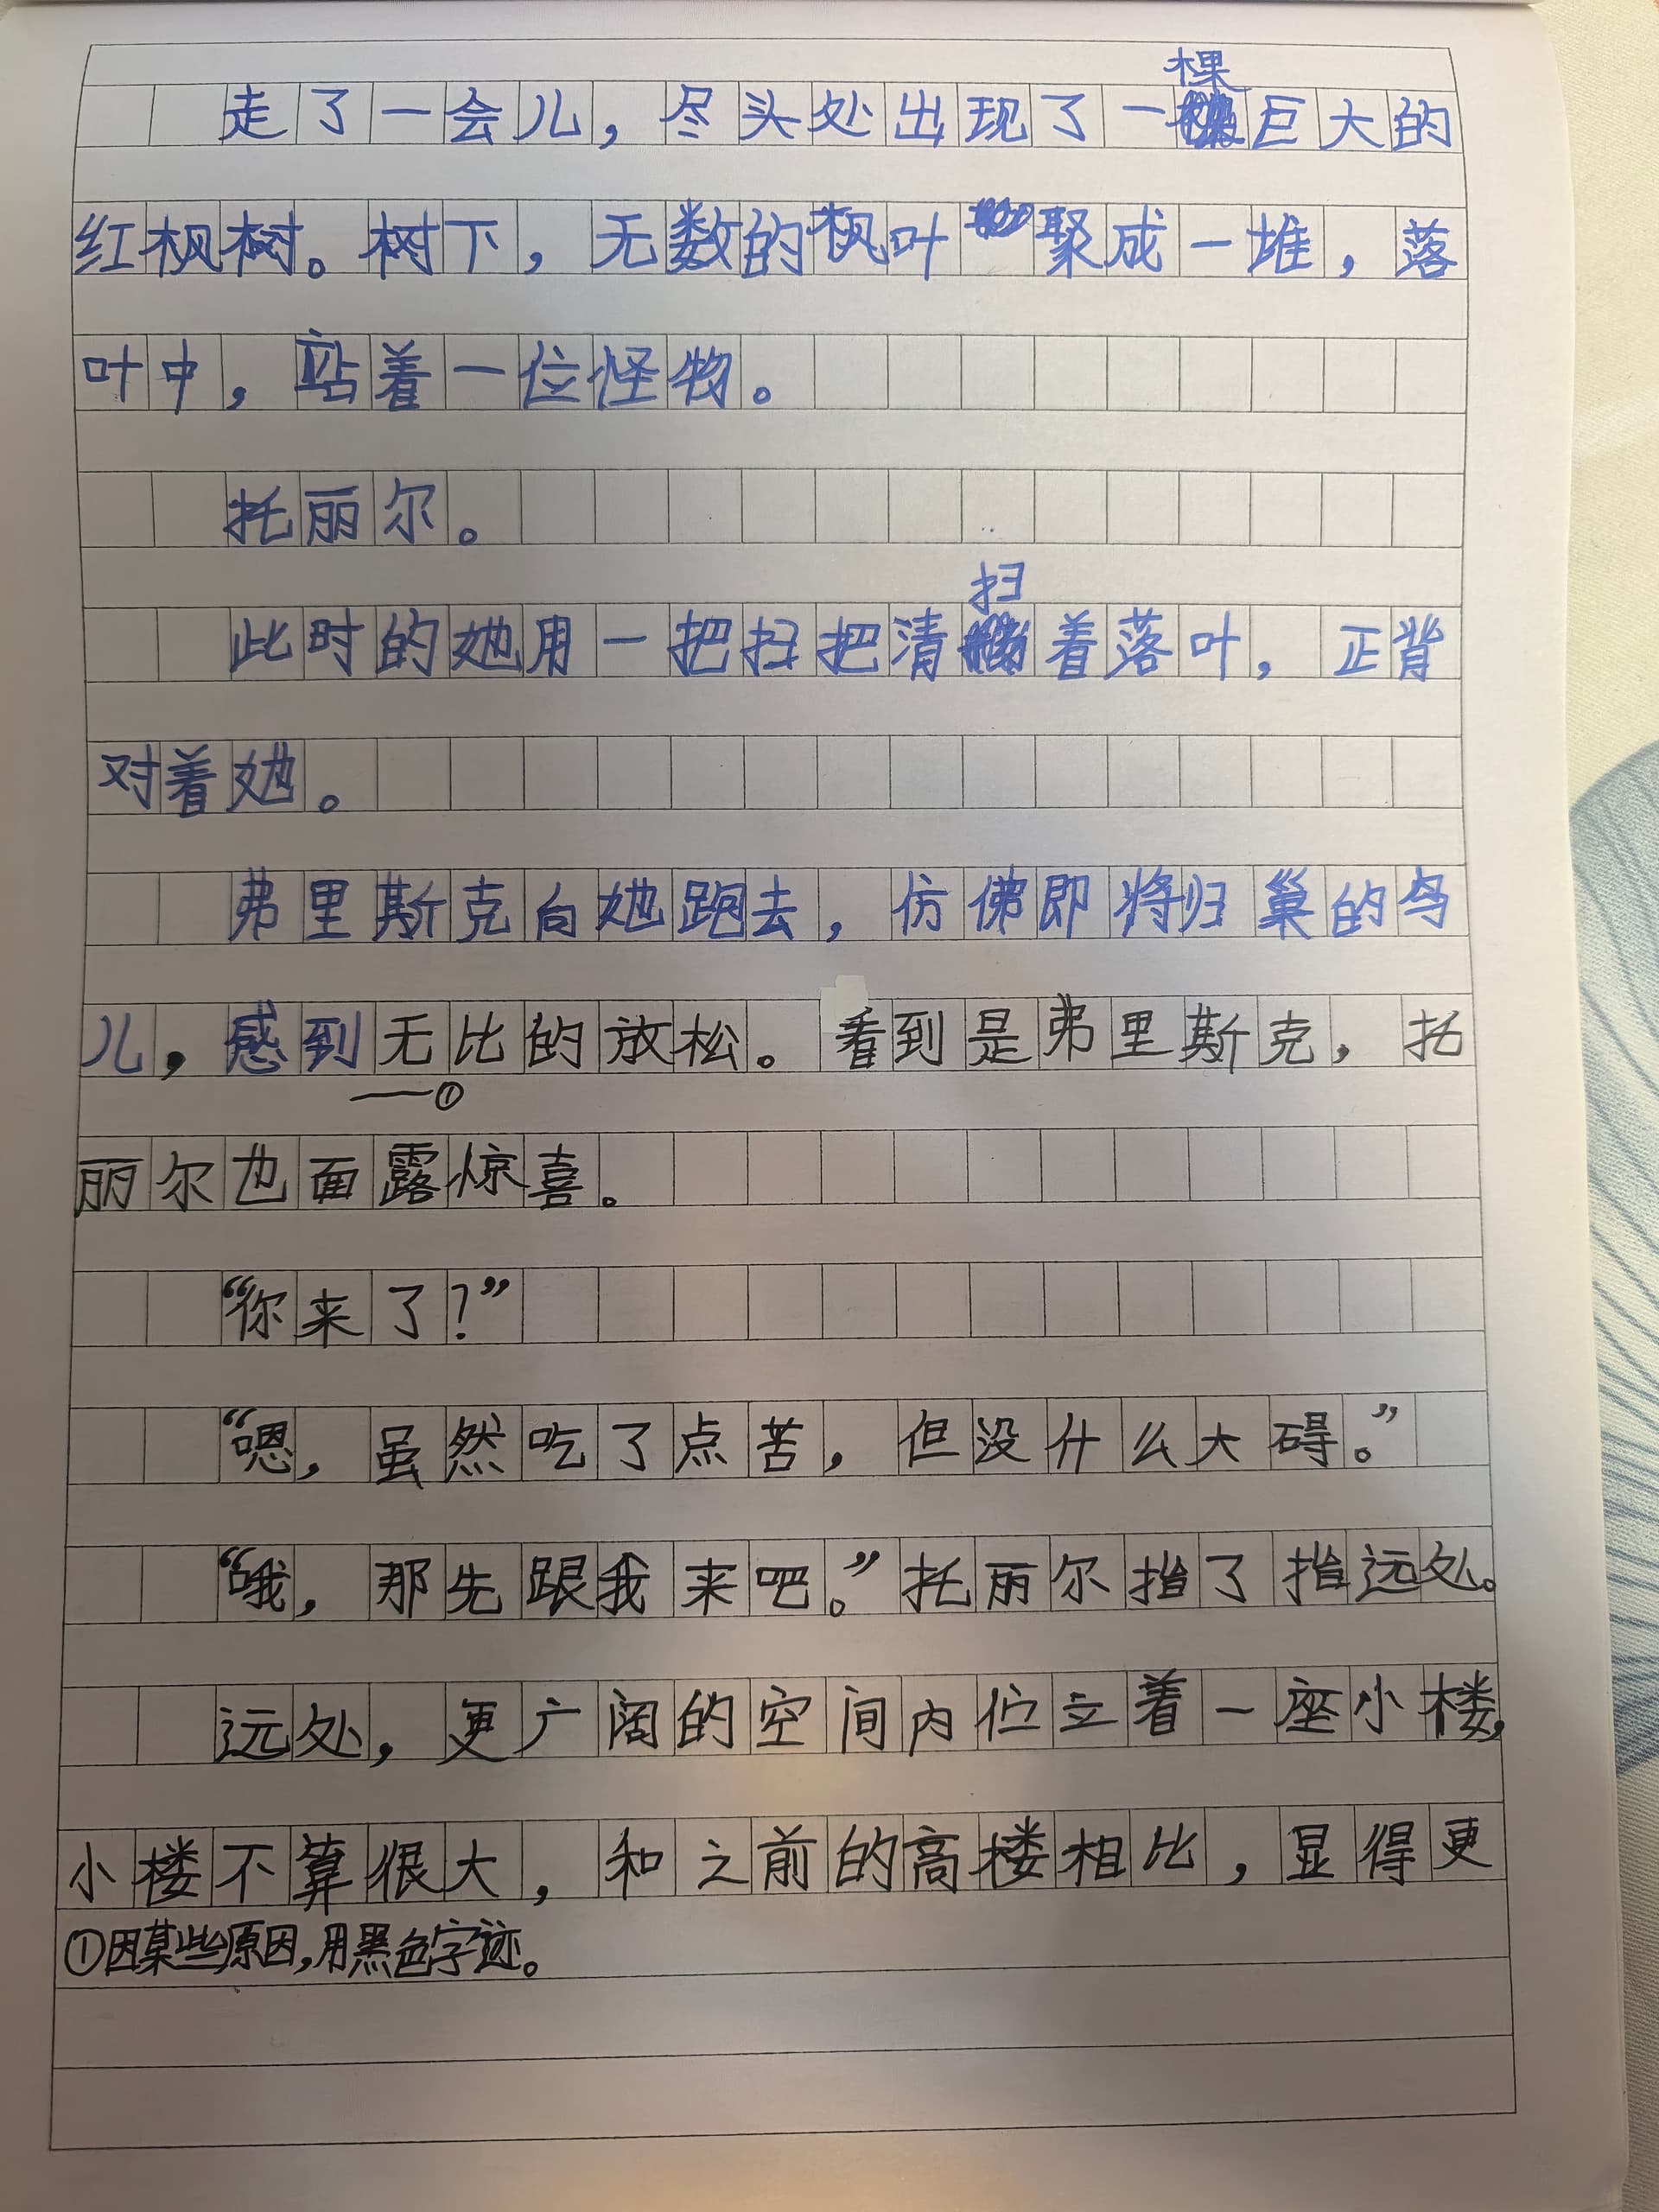 走了一会儿，尽头处出现了一棵巨大的
红枫树。树下，无数的枫叶聚成一堆，落
叶中，站着一位怪物。
托丽尔。
此时的她用一把扫把清扫着落叶，正背
对着她。
弗里斯克向她跑去，仿佛即将归巢的鸟
儿，感到无比的放松。看到是弗里斯克，托
——①
丽尔也面露惊喜。
“你来了？”
“嗯，虽然吃了点苦，但没什么大碍。”
“哦，那先跟我来吧。”托丽尔指了指远处。
远处，更广阔的空间内伫立着一座小楼，
小楼不算很大，和之前的高楼相比，显得更
①因某些原因，用黑色字迹。